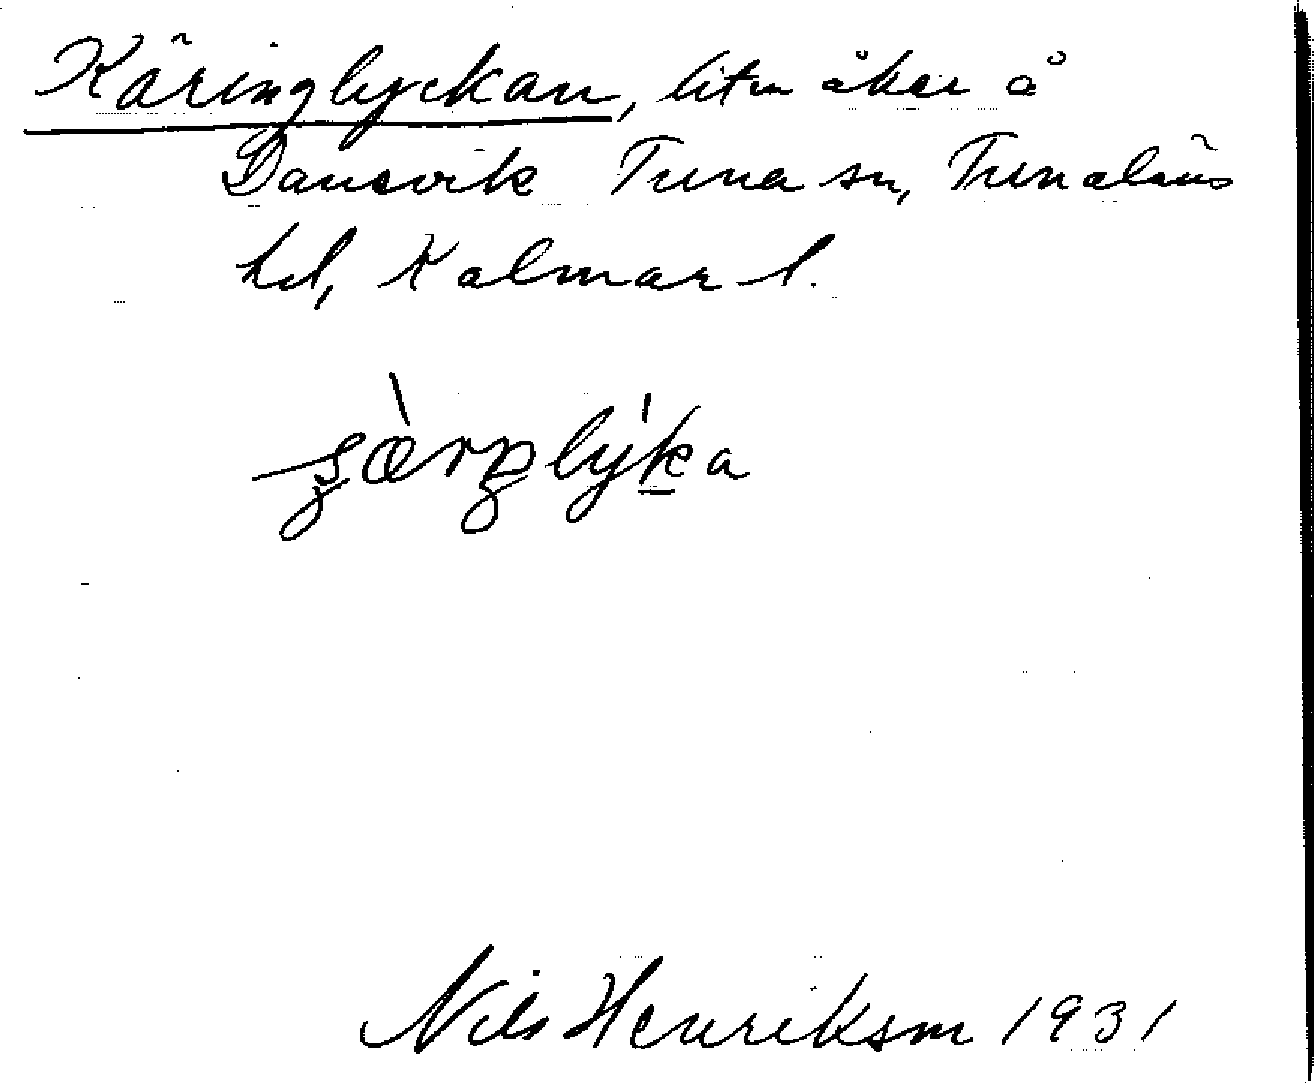 Käringlyckan, liten åker å
Dansvik Tuna sn, Tunaläns
hd, Kalmar l.
Nils Henrikson 1931